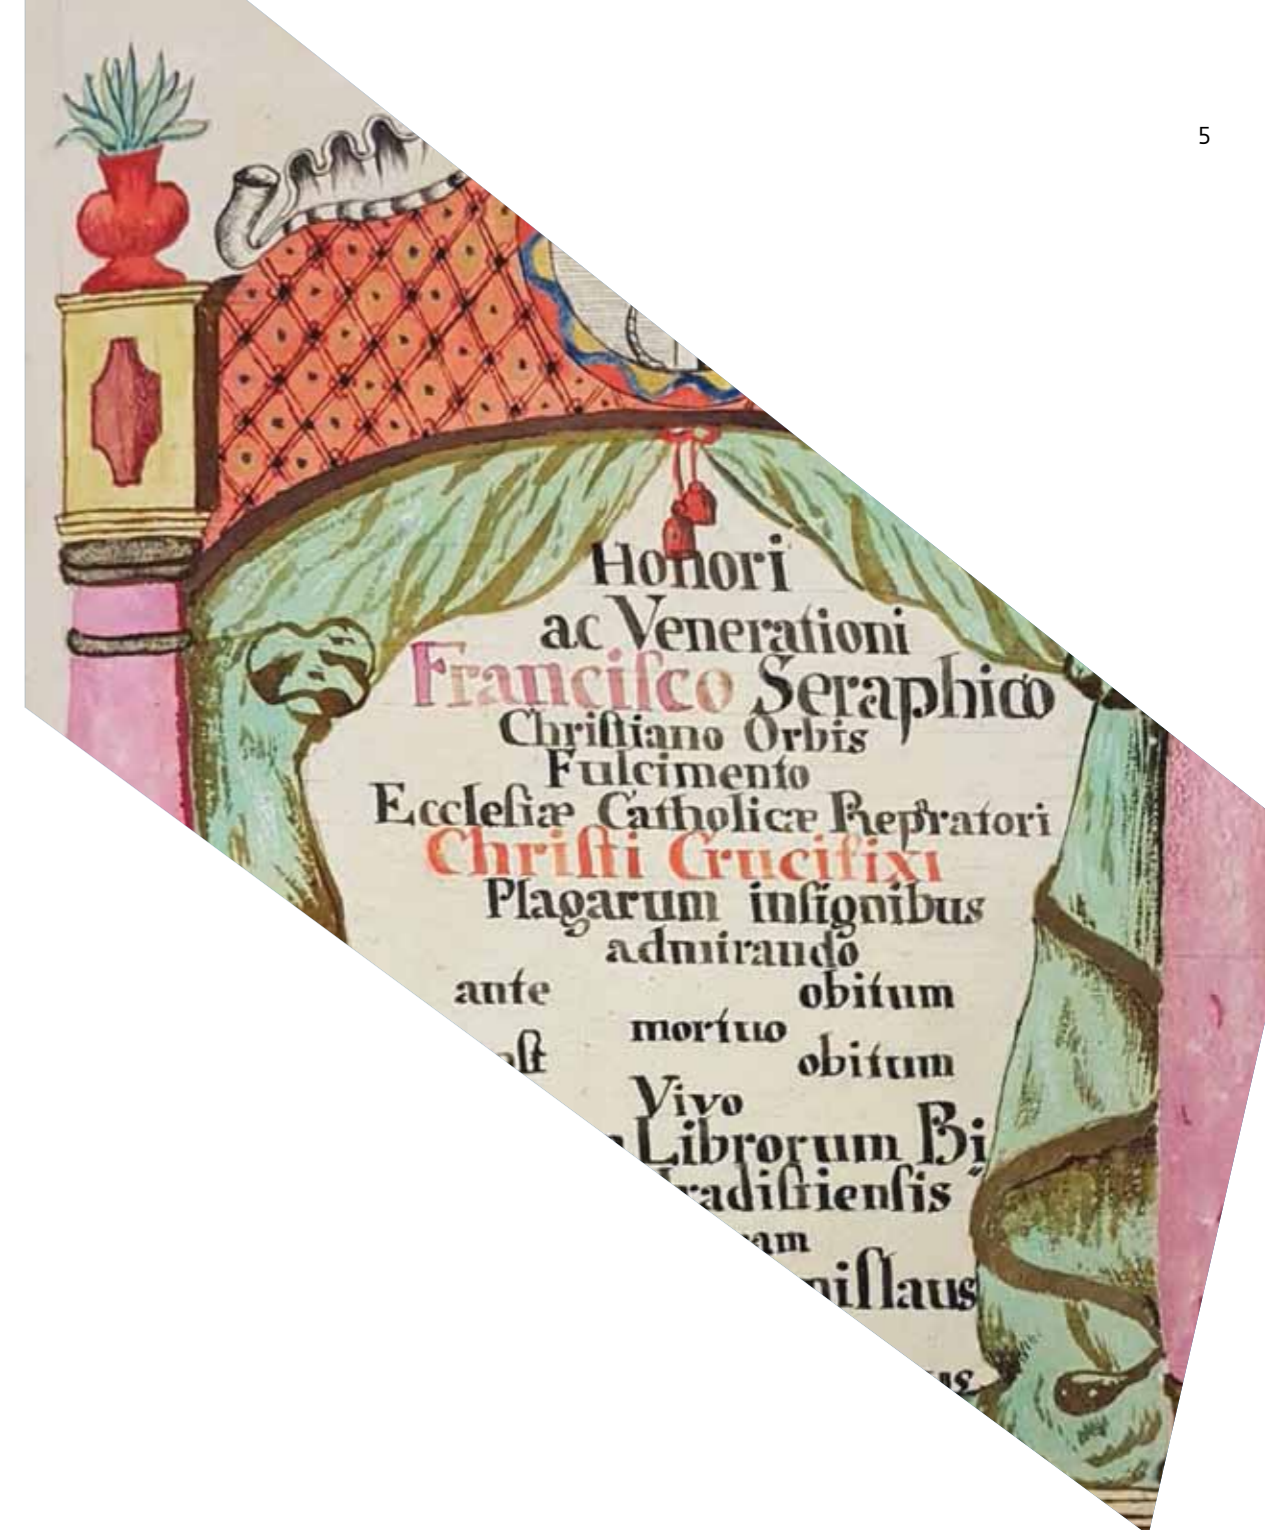 5
Honori
ac Venerationi
Franciſco Seraphico
Chriſtiano Orbis
Fulcimento
Eccleſiæ Catholicæ Reparatori
Chriſti Crucifixi
Plagarum inſignibus
admirando
ante obitum
mortuo
oſt obitum
Vivo
Librorum Bi
radiſtienſis
am
niſlaus
us